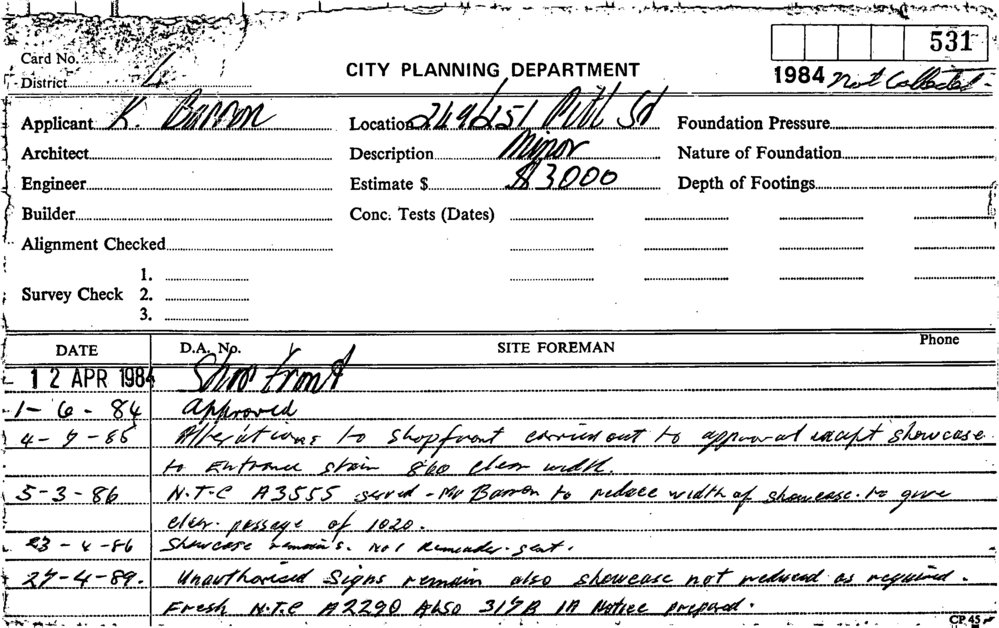 531
Card No.
District 4
CITY PLANNING DEPARTMENT
1984 Not Collected -
Applicant K. Barron
Location 249/251 Pitt St
Foundation Pressure
Architect
Description Minor
Nature of Foundation
Engineer
Estimate $ $3000
Depth of Footings
Builder
Conc. Tests (Dates)
Alignment Checked
1.
Survey Check 2.
3.
DATE
D.A. No.
SITE FOREMAN
Phone
12 APR 1984 Shop Front
1-6-84 Approved
Alterations to shopfront carried out to approval except showcase
to Entrance stair 860 clear width.
5-3-86 N.T.C A3555 served - Mr Barron to reduce width of showcase to give
clear passage of 1020.
23-4-86 Showcase remains. No 1 Reminder sent.
27-4-89. Unauthorised Signs remain also showcase not reduced as required.
Fresh N.T.C A2290 Also 317B 1A Notice prepared.
CP 45